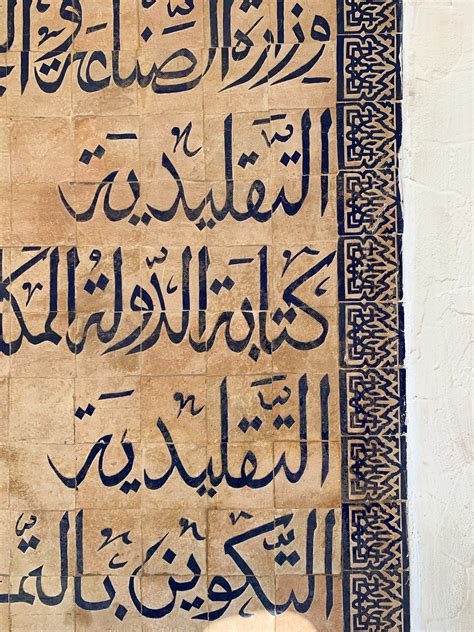 وزارة الصناعة وا
التّقليديّة
كتابة الدّولة المك
التّقليديّة
التّكوين بالتّم